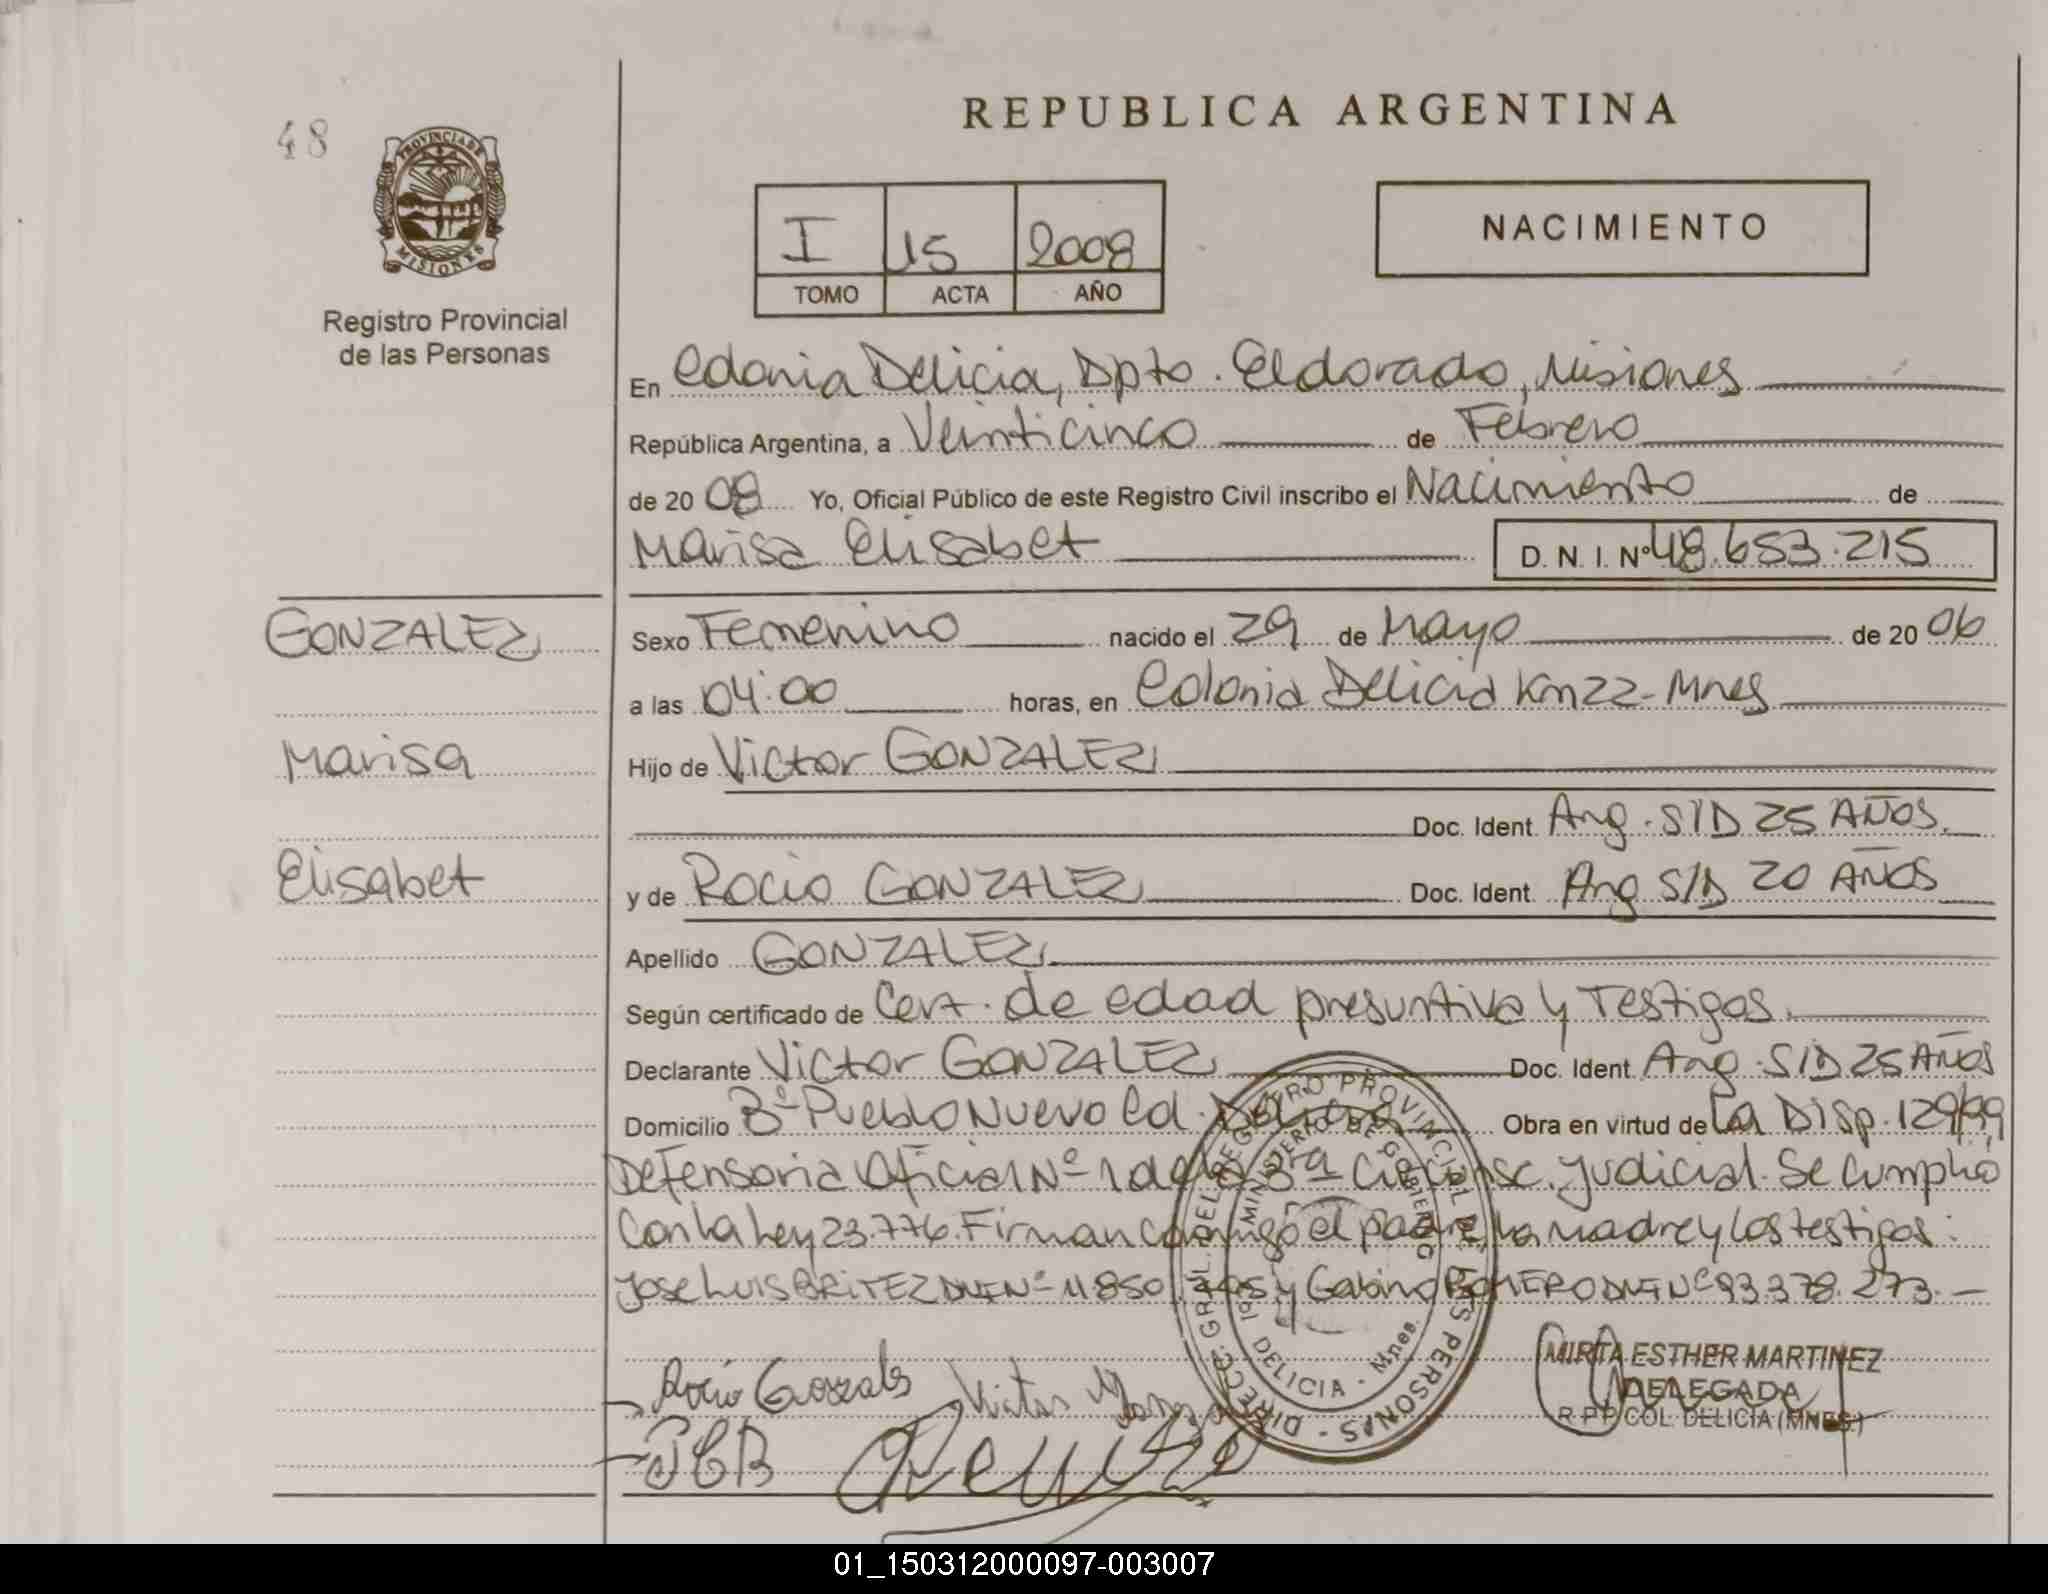 REPUBLICA ARGENTINA
48
PROVINCIA DE
MISIONES
Registro Provincial
de las Personas
I 15 2008
TOMO ACTA AÑO
NACIMIENTO
En Colonia Delicia, Dpto. Eldorado, Misiones
República Argentina, a Veinticinco de Febrero
de 20 08 Yo, Oficial Público de este Registro Civil inscribo el Nacimiento de
Marisa Elisabet D. N. I. Nº 48.653.215
GONZALEZ
Marisa
Elisabet
Sexo Femenino nacido el 29 de Mayo de 20 06
a las 04:00 horas, en Colonia Delicia Km 22 - Mnes
Hijo de Victor GONZALEZ
Doc. Ident. Arg. S/D 25 AÑOS.
y de Rocio GONZALEZ Doc. Ident. Arg S/D 20 AÑOS
Apellido GONZALEZ
Según certificado de Cert. de edad presuntiva y Testigos.
Declarante Victor GONZALEZ Doc. Ident. Arg. S/D 25 AÑOS
Domicilio Bº Pueblo Nuevo Col. Delicia Obra en virtud de La Disp. 129/99
Defensoria Oficial Nº 1 de la 3ra Circunsc. Judicial. Se Cumplió
Con la Ley 23.776. Firman Conmigo el padre, la madre y los testigos:
Jose Luis BRITEZ DNI Nº 11850 y Gabino ROMERO DNI Nº 93.378.273.-
DIRECC. GRAL. DEL REGISTRO PROVINCIAL DE LAS PERSONAS
MINISTERIO DE GOBIERNO
DELICIA - Mnes.
MIRTA ESTHER MARTINEZ
DELEGADA
R.P.P. COL. DELICIA (MNES.)
Rocio Gonzales Victor
JCB
01_150312000097-003007